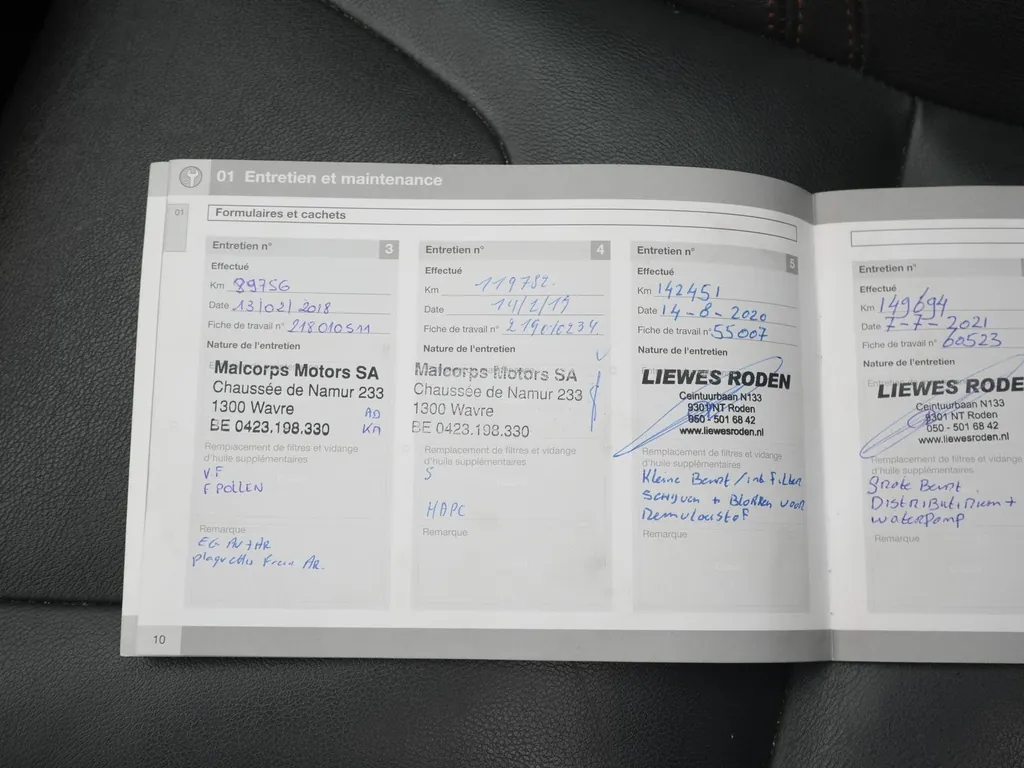 01 Entretien et maintenance
01
Formulaires et cachets
Entretien n° 3
Effectué
Km 89756
Date 13/02/2018
Fiche de travail n° 218010511
Nature de l'entretien
Malcorps Motors SA
Chaussée de Namur 233
1300 Wavre
BE 0423.198.330
Remplacement de filtres et vidange
d'huile supplémentaires
VF
F POLLEN
Remarque
10
Entretien n° 4
Effectué
Km 119782.
Date 14/2/19
Fiche de travail n° 219010234
Nature de l'entretien
Malcorps Motors SA
Chaussée de Namur 233
1300 Wavre
BE 0423.198.330
Remplacement de filtres et vidange
d'huile supplémentaires
S
HAPC
Remarque
Entretien n° 5
Effectué
Km 142451
Date 14-8-2020
Fiche de travail n° 55007
Nature de l'entretien
LIEWES RODEN
Ceintuurbaan N133
9301 NT Roden
050 - 501 68 42
www.liewesroden.nl
Remplacement de filtres et vidange
d'huile supplémentaires
Kleine Beurt / int Filter
Schijven + Blokken voor
Remvloeistof
Remarque
Entretien n°
Effectué
Km 149694
Date 7-7-2021
Fiche de travail n° 60523
Nature de l'entretien
LIEWES RODE
Ceintuurbaan N133
9301 NT Roden
050 - 501 68 42
www.liewesroden.nl
Remplacement de filtres et vidange
d'huile supplémentaires
Grote Beurt
Distributieriem +
waterpomp
Remarque